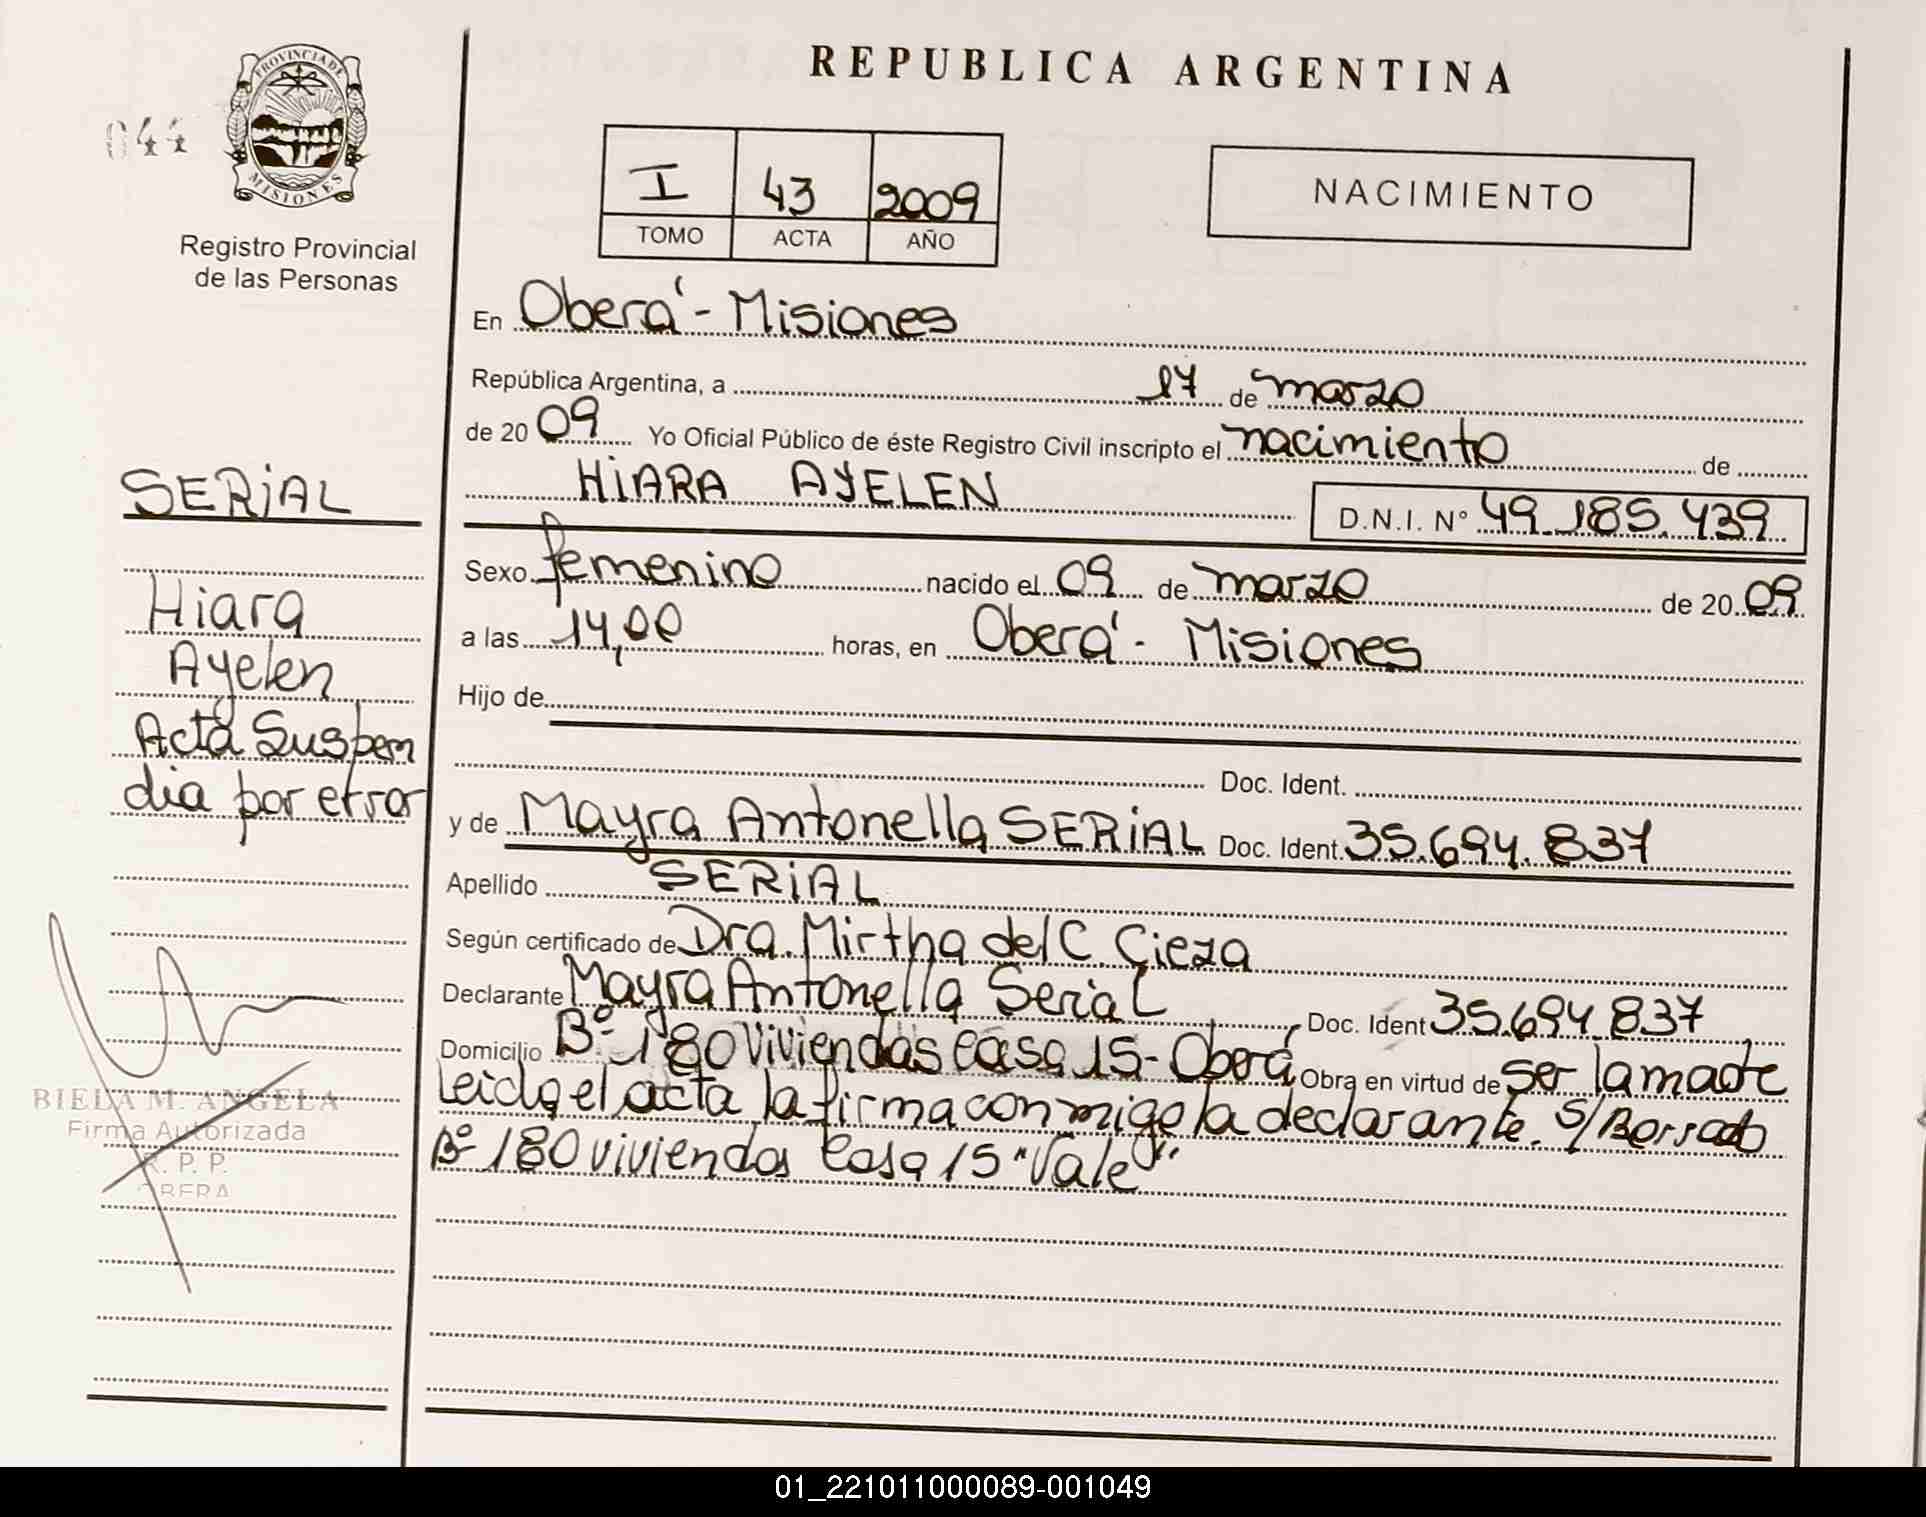 REPUBLICA ARGENTINA
PROVINCIA DE
MISIONES
044
Registro Provincial
de las Personas
I 43 2009
TOMO ACTA AÑO
NACIMIENTO
En Oberá - Misiones
República Argentina, a 17 de marzo
de 20 09 Yo Oficial Público de éste Registro Civil inscripto el nacimiento de
HIARA AYELEN D.N.I. N° 49.185.439
Sexo femenino nacido el 09 de marzo de 20 09
a las 14,00 horas, en Oberá - Misiones
Hijo de
Doc. Ident.
y de Mayra Antonella SERIAL Doc. Ident. 35.694.837
Apellido SERIAL
Según certificado de Dra. Mirtha del C. Cieza
Declarante Mayra Antonella Serial Doc. Ident 35.694.837
Domicilio B° 180 Viviendas Casa 15 - Oberá Obra en virtud de ser la madre
Leida el acta la firma conmigo la declarante. S/Borrado
B° 180 viviendas Casa 15 "Vale"
SERIAL
Hiara
Ayelen
Acta Suspen
dia por error
BIELA M. ANGELA
Firma Autorizada
R. P. P.
OBERA
01_221011000089-001049